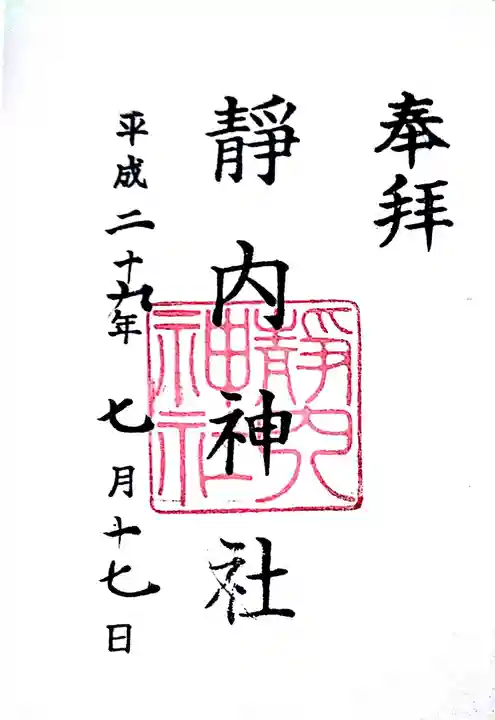 奉拝
靜内神社
靜内神社
平成二十九年七月十七日